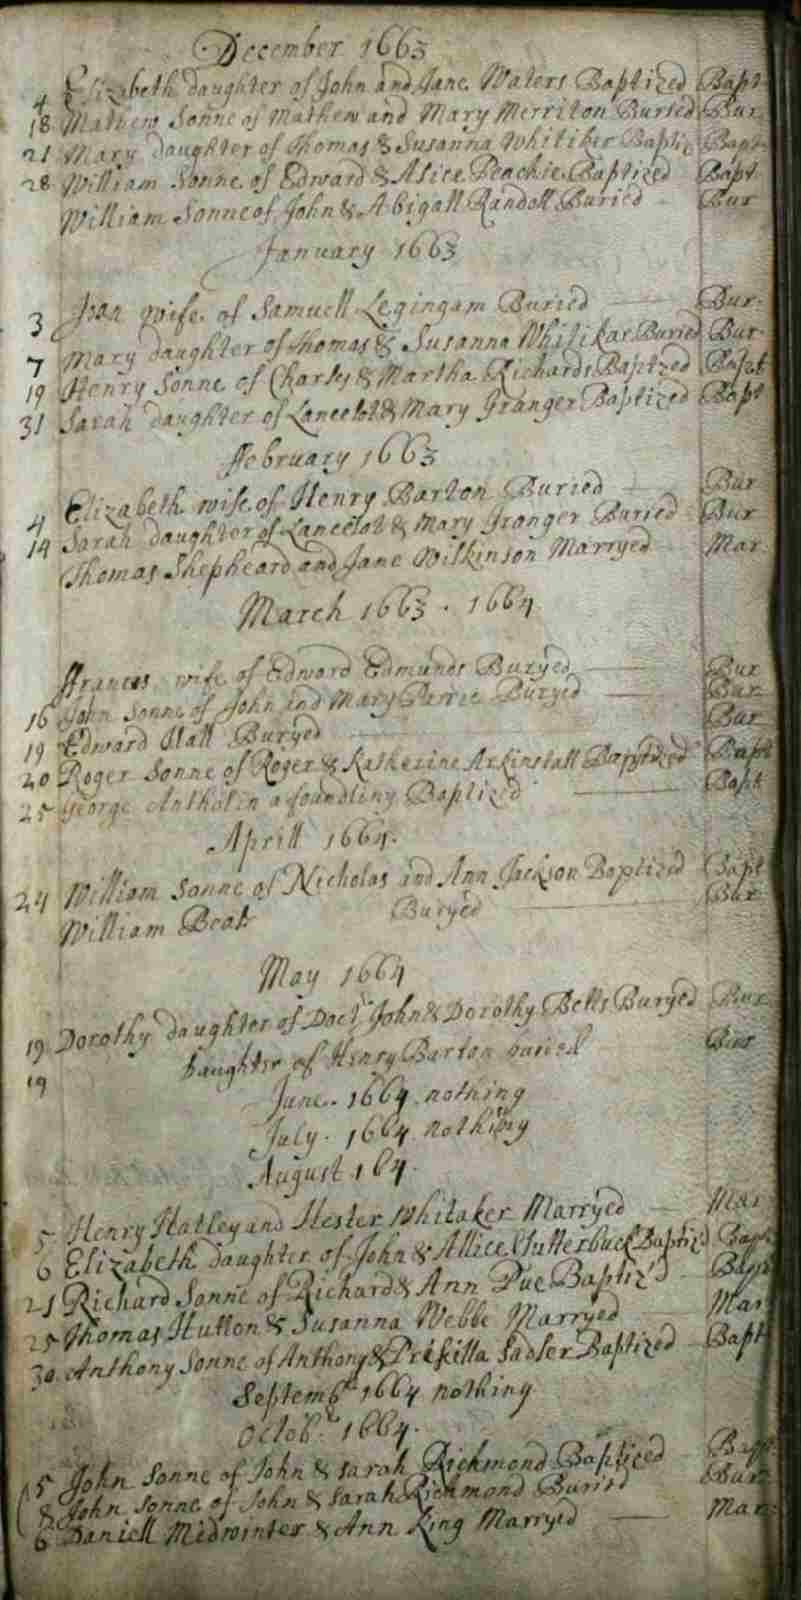 December 1663
4 Elizabeth daughter of John and Jane Waters Baptized Bapt
18 Mathew Sonne of Mathew and Mary Merriton Buried Bur
21 Mary daughter of Thomas & Susanna Whitiker Baptiz Bapt
28 William Sonne of Edward & Alice Peachie Baptized Bapt
William Sonne of John & Abigall Randoll Buried Bur
January 1663
3 Joan wife of Samuell Legingam Buried Bur
7 Mary daughter of Thomas & Susanna Whitikar Buried Bur
19 Henry Sonne of Charles & Martha Richards Baptized Bapt
31 Sarah daughter of Lancelot & Mary Granger Baptized Bapt
ffebruary 1663
4 Elizabeth wife of Henry Barton Buried Bur
14 Sarah daughter of Lancelot & Mary Granger Buried Bur
Thomas Shepheard and Jane Wilkinson Marryed Mar
March 1663 . 1664
ffrances wife of Edward Edmunds Buryed Bur
16 John Sonne of John and Mary Buryed Bur
19 Edward Hall Buryed Bur
20 Roger Sonne of Roger & Katherine Arkinstall Baptized Bapt
25 George Antholin a foundling Baptized Bapt
Aprill 1664.
24 William Sonne of Nicholas and Ann Jackson Baptized Bapt
William Buryed Bur
May 1664
19 Dorothy daughter of Doctr John & Dorothy Betts Buryed Bur
19 daughter of Henry Barton buried Bur
June. 1664. nothing
July. 1664. nothing
August 164.
5 Henry Hatley and Hester Whitaker Marryed Mar
6 Elizabeth daughter of John & Allice Clutterbuck Baptiz'd Bapt
21 Richard Sonne of Richard & Ann Pue Baptiz'd Bapt
25 Thomas Hutton & Susanna Webbe Marryed Mar
30 Anthony Sonne of Anthony & Priscilla Sadler Baptized Bapt
Septembr 1664 nothing
Octobr 1664.
5 John Sonne of John & Sarah Richmond Baptized Bapt
& John Sonne of John & Sarah Richmond Buried Bur
6 Daniell Midwinter & Ann King Marryed Mar